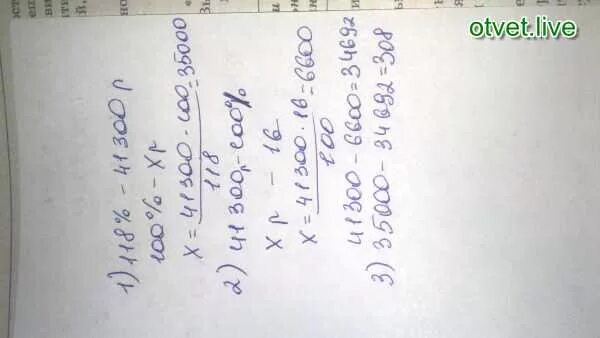 otvet.live
1) 118% - 41300 р
100% - х р
х = 41300 · 100 = 35000
118
2) 41300 р - 100%
х р - 16
х = 41300 · 16 = 6600
100
41300 - 6600 = 34692
3) 35000 - 34692 = 308